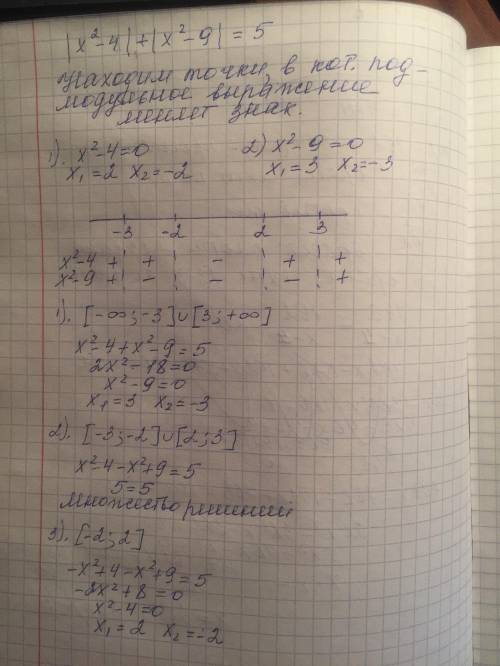 |x²-4|+|x²-9| = 5
Находим точки, в кот. под-
модульное выражение
меняет знак.
1). x²-4=0 2) x²-9=0
x₁=2 x₂=-2 x₁=3 x₂=-3
-3 -2 2 3
x²-4 + + - + +
x²-9 + - - - +
1). [-∞;-3]∪[3;+∞]
x²-4+x²-9=5
2x²-18=0
x²-9=0
x₁=3 x₂=-3
2). [-3;-2]∪[2;3]
x²-4-x²+9=5
5=5
множество решений
3). [-2;2]
-x²+4-x²+9=5
-2x²+8=0
x²-4=0
x₁=2 x₂=-2